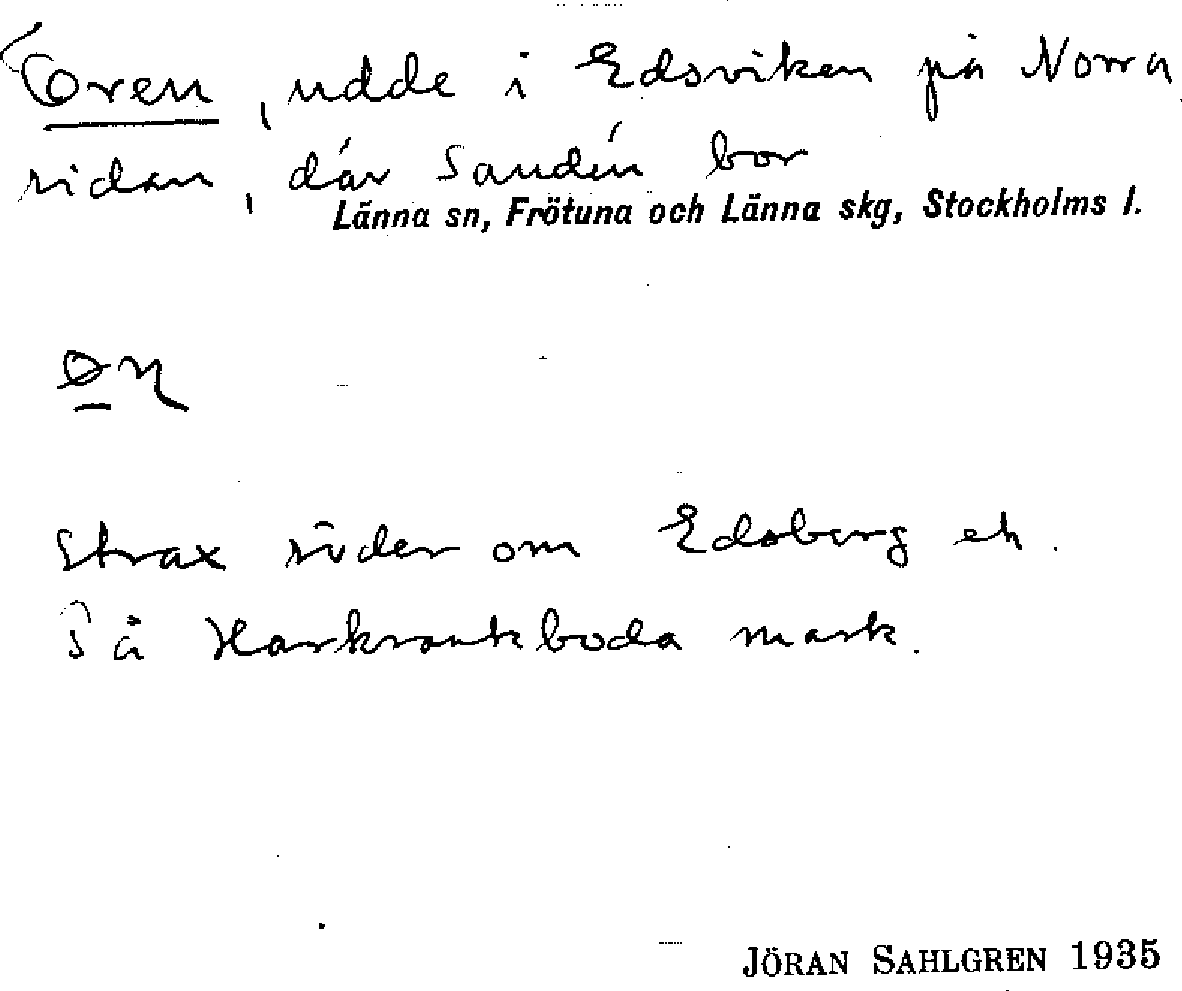 Oren, udde i Edsviken på Norra
sidan, där Sandén bor
Länna sn, Frötuna och Länna skg, Stockholms l.
Strax söder om Edsberg eh.
På Harkrankboda mark.
JÖRAN SAHLGREN 1935